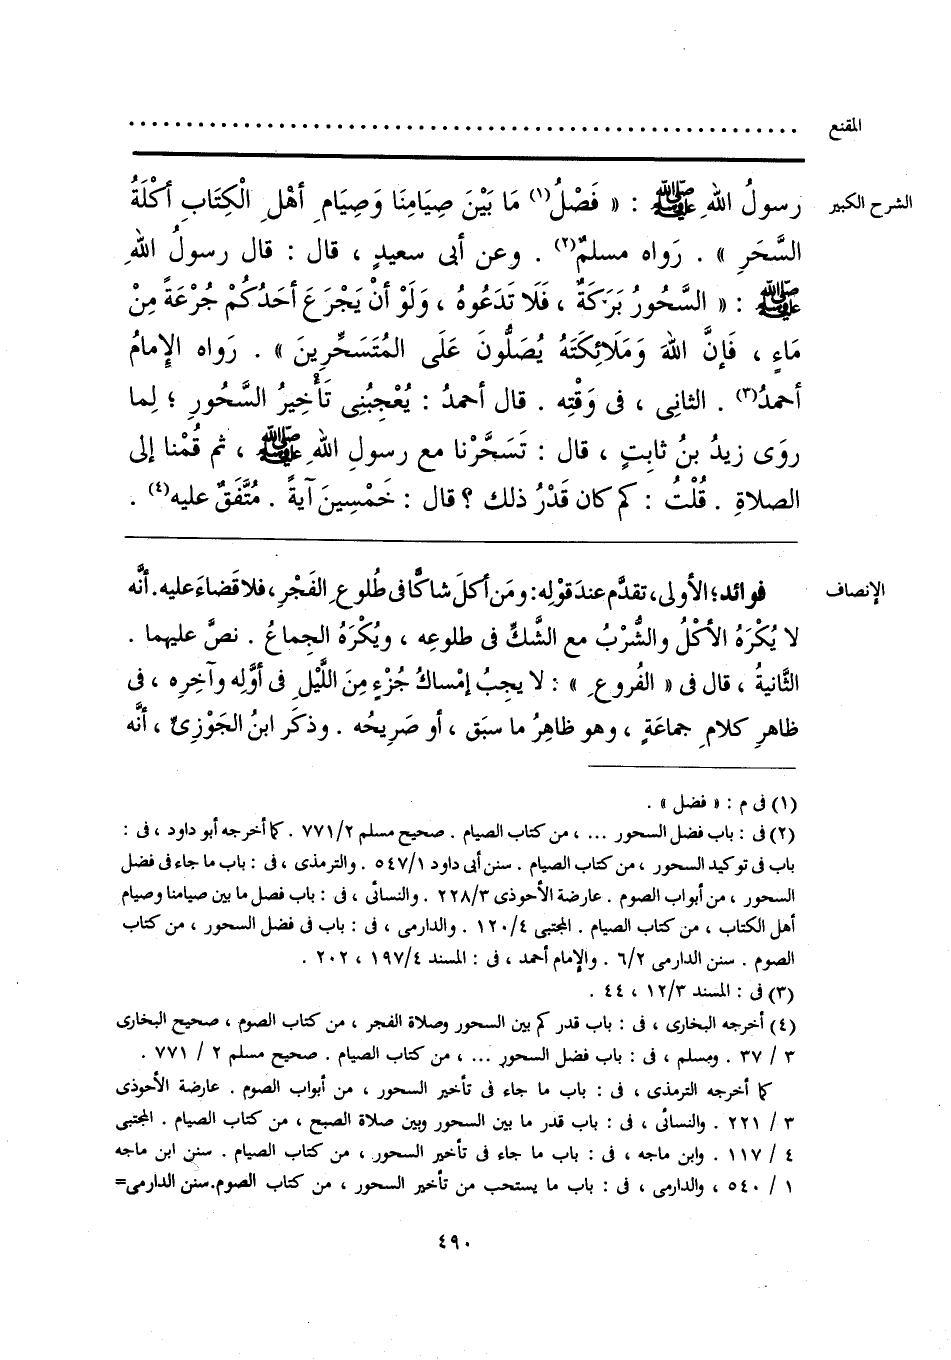 المقنع ............................................................
الشرح الكبير
رسولُ اللهِ ﷺ : « فَصْلُ(١) مَا بَيْنَ صِيَامِنَا وَصِيَامِ أَهْلِ الْكِتَابِ أَكْلَةُ
السَّحَرِ » . رَواه مسلمٌ(٢) . وعن أبى سعيدٍ ، قال : قال رسولُ اللهِ
ﷺ : « السَّحُورُ بَرَكَةٌ ، فَلَا تَدَعُوهُ ، وَلَوْ أنْ يَجْرَعَ أحَدُكُمْ جُرْعَةً مِنْ
مَاءٍ ، فَإنَّ اللهَ وَمَلَائِكَتَهُ يُصَلُّونَ عَلَى المُتَسَحِّرِينَ » . رَواه الإِمامُ
أحمدُ(٣) . الثانِى ، فى وَقْتِه . قال أحمدُ : يُعْجِبُنِى تَأْخِيرُ السَّحُورِ ؛ لِما
روَى زيدُ بنُ ثابتٍ ، قال : تَسَحَّرْنا مع رسولِ اللهِ ﷺ ، ثم قُمْنا إلى
الصلاةِ . قُلْتُ : كم كان قَدْرُ ذلك ؟ قال : خَمْسِينَ آيةً . مُتَّفَقٌ عليه(٤) .
الإنصاف
فوائد ؛ الأولى ، تقدَّم عند قولِه : ومَن أكلَ شاكًّا فى طُلوعِ الفَجْرِ ، فلا قَضاءَ عليه . أنَّه
لا يُكْرَهُ الأكْلُ والشُّرْبُ مع الشَّكِّ فى طلوعِه ، ويُكْرَهُ الجِماعُ . نصَّ عليهما .
الثَّانيةُ ، قال فى « الفُروعِ » : لا يجِبُ إمْساكُ جُزْءٍ مِنَ اللَّيْلِ فى أوَّلِه وآخِرِه ، فى
ظاهرِ كلامِ جماعَةٍ ، وهو ظاهِرُ ما سبَق ، أو صَرِيحُه . وذكَر ابنُ الجَوْزِىِّ ، أنَّه
(١) فى م : « فضل » .
(٢) فى : باب فضل السحور ... ، من كتاب الصيام . صحيح مسلم ٢/ ٧٧١ . كما أخرجه أبو داود ، فى :
باب فى توكيد السحور ، من كتاب الصيام . سنن أبى داود ١/ ٥٤٧ . والترمذى ، فى : باب ما جاء فى فضل
السحور ، من أبواب الصوم . عارضة الأحوذى ٣/ ٢٢٨ . والنسائى ، فى : باب فصل ما بين صيامنا وصيام
أهل الكتاب ، من كتاب الصيام . المجتبى ٤/ ١٢٠ . والدارمى ، فى : باب فى فضل السحور ، من كتاب
الصوم . سنن الدارمى ٢/ ٦ . والإمام أحمد ، فى : المسند ٤/ ١٩٧ ، ٢٠٢ .
(٣) فى : المسند ٣/ ١٢ ، ٤٤ .
(٤) أخرجه البخارى ، فى : باب قدر كم بين السحور وصلاة الفجر ، من كتاب الصوم ، صحيح البخارى
٣ / ٣٧ . ومسلم ، فى : باب فضل السحور ... ، من كتاب الصيام . صحيح مسلم ٢ / ٧٧١ .
كما أخرجه الترمذى ، فى : باب ما جاء فى تأخير السحور ، من أبواب الصوم . عارضة الأحوذى
٣ / ٢٢١ . والنسائى ، فى : باب قدر ما بين السحور وبين صلاة الصبح ، من كتاب الصيام . المجتبى
٤ / ١١٧ . وابن ماجه ، فى : باب ما جاء فى تأخير السحور ، من كتاب الصيام . سنن ابن ماجه
١ / ٥٤٠ ، والدارمى ، فى : باب ما يستحب من تأخير السحور ، من كتاب الصوم . سنن الدارمى =
٤٩٠